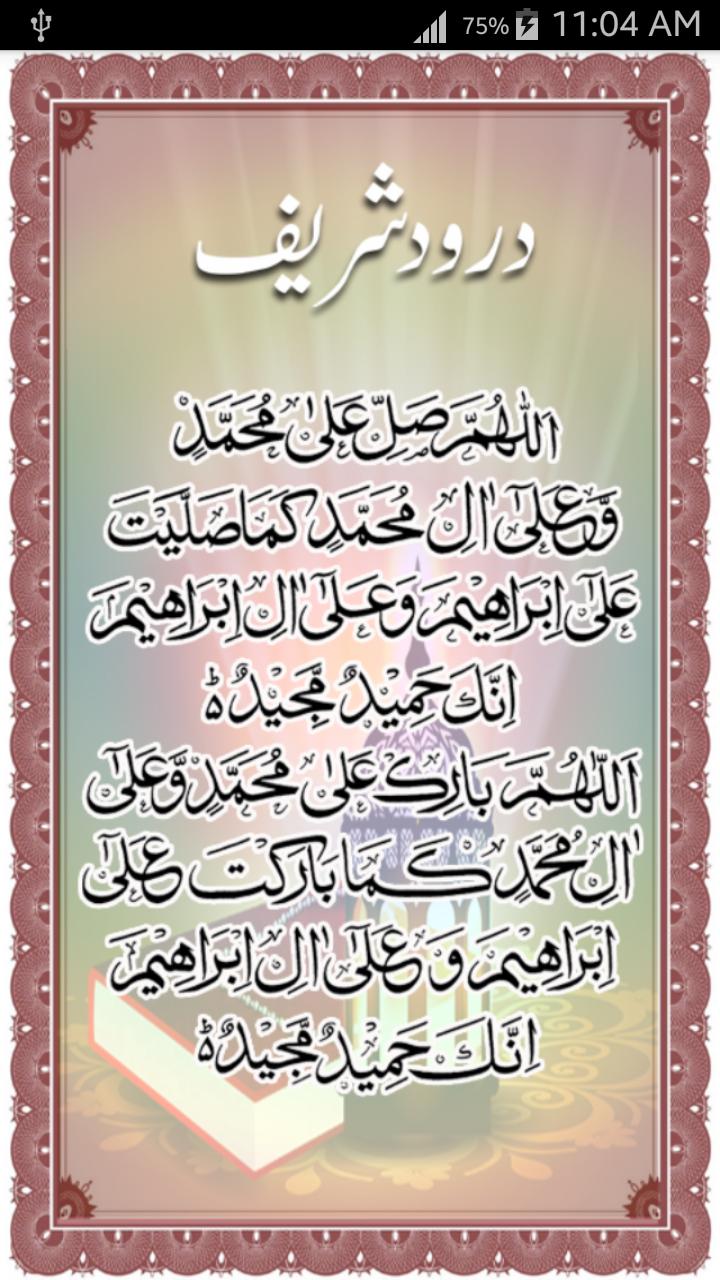 75% 11:04 AM
درود شریف
اَللّٰهُمَّ صَلِّ عَلٰى مُحَمَّدٍ
وَّعَلٰٓى اٰلِ مُحَمَّدٍ كَمَا صَلَّيْتَ
عَلٰٓى اِبْرَاهِيْمَ وَعَلٰٓى اٰلِ اِبْرَاهِيْمَ
اِنَّكَ حَمِيْدٌ مَّجِيْدٌ ؕ
اَللّٰهُمَّ بَارِكْ عَلٰى مُحَمَّدٍ وَّعَلٰٓى
اٰلِ مُحَمَّدٍ كَمَا بَارَكْتَ عَلٰٓى
اِبْرَاهِيْمَ وَ عَلٰٓى اٰلِ اِبْرَاهِيْمَ
اِنَّكَ حَمِيْدٌ مَّجِيْدٌ ؕ